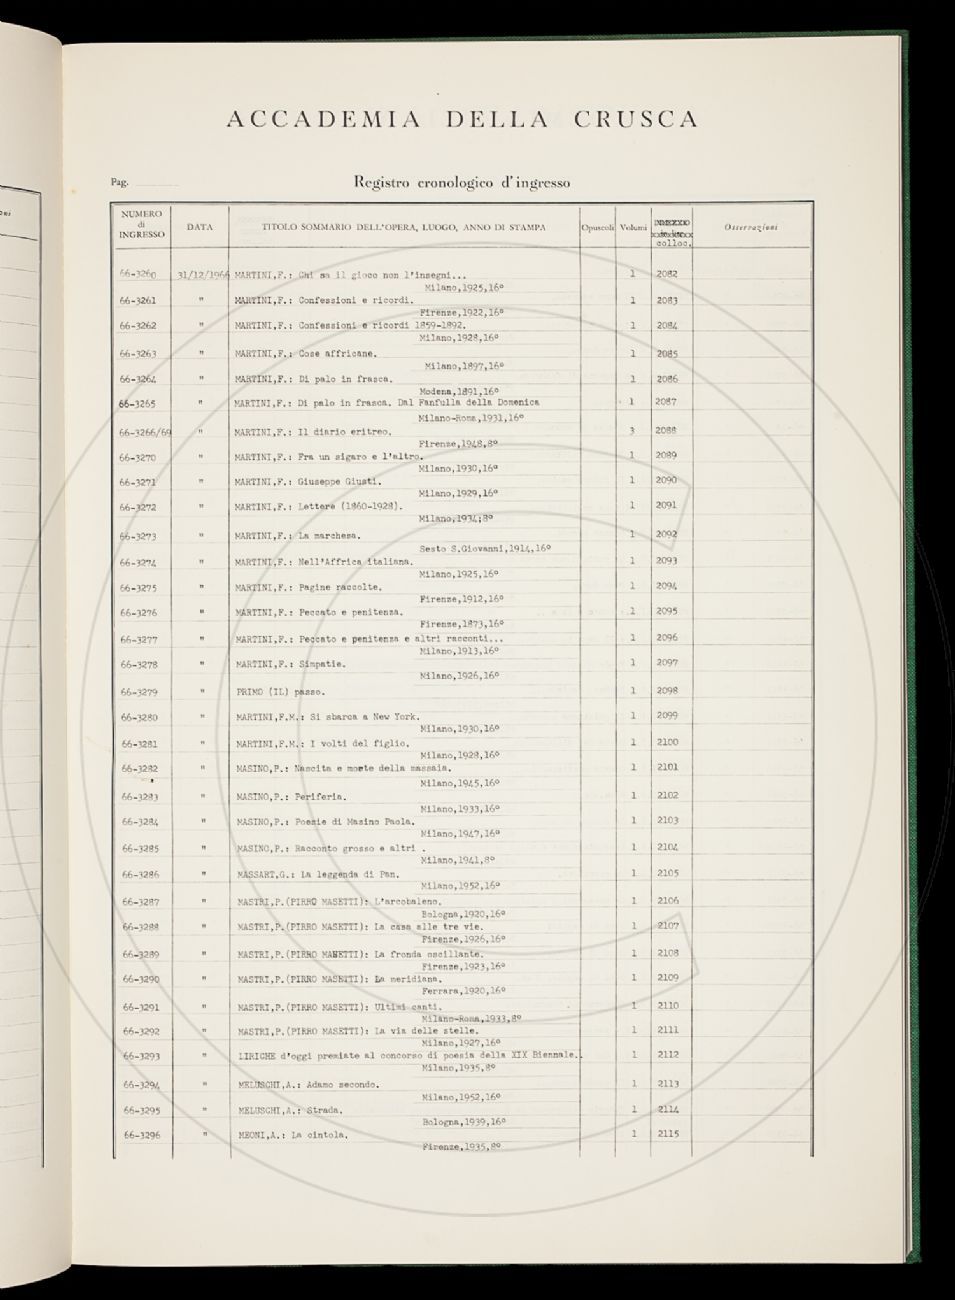 ACCADEMIA DELLA CRUSCA
Pag.
Registro cronologico d'ingresso
NUMERO di INGRESSO DATA TITOLO SOMMARIO DELL'OPERA, LUOGO, ANNO DI STAMPA Opuscoli Volumi colloc. Osservazioni
66-3260 31/12/1966 MARTINI,F.: Chi sa il gioco non l'insegni... 1 2082
Milano,1925,16º
66-3261 " MARTINI,F.: Confessioni e ricordi. 1 2083
Firenze,1922,16º
66-3262 " MARTINI,F.: Confessioni e ricordi 1859-1892. 1 2084
Milano,1928,16º
66-3263 " MARTINI,F.: Cose affricane. 1 2085
Milano,1897,16º
66-3264 " MARTINI,F.: Di palo in frasca. 1 2086
Modena,1891,16º
66-3265 " MARTINI,F.: Di palo in frasca. Dal Fanfulla della Domenica 1 2087
Milano-Roma,1931,16º
66-3266/69 " MARTINI,F.: Il diario eritreo. 3 2088
Firenze,1948,8º
66-3270 " MARTINI,F.: Fra un sigaro e l'altro. 1 2089
Milano,1930,16º
66-3271 " MARTINI,F.: Giuseppe Giusti. 1 2090
Milano,1929,16º
66-3272 " MARTINI,F.: Lettere (1860-1928). 1 2091
Milano,1934;8º
66-3273 " MARTINI,F.: La marchesa. 1 2092
Sesto S.Giovanni,1914,16º
66-3274 " MARTINI,F.: Nell'Affrica italiana. 1 2093
Milano,1925,16º
66-3275 " MARTINI,F.: Pagine raccolte. 1 2094
Firenze,1912,16º
66-3276 " MARTINI,F.: Peccato e penitenza. 1 2095
Firenze,1873,16º
66-3277 " MARTINI,F.: Peccato e penitenza e altri racconti... 1 2096
Milano,1913,16º
66-3278 " MARTINI,F.: Simpatie. 1 2097
Milano,1926,16º
66-3279 " PRIMO (IL) passo. 1 2098
66-3280 " MARTINI,F.M.: Si sbarca a New York. 1 2099
Milano,1930,16º
66-3281 " MARTINI,F.M.: I volti del figlio. 1 2100
Milano,1928,16º
66-3282 " MASINO,P.: Nascita e morte della massaia. 1 2101
Milano,1945,16º
66-3283 " MASINO,P.: Periferia. 1 2102
Milano,1933,16º
66-3284 " MASINO,P.: Poesie di Masino Paola. 1 2103
Milano,1947,16º
66-3285 " MASINO,P.: Racconto grosso e altri . 1 2104
Milano,1941,8º
66-3286 " MASSART,G.: La leggenda di Pan. 1 2105
Milano,1952,16º
66-3287 " MASTRI,P.(PIRRO MASETTI): L'arcobaleno. 1 2106
Bologna,1920,16º
66-3288 " MASTRI,P.(PIRRO MASETTI): La casa alle tre vie. 1 2107
Firenze,1926,16º
66-3289 " MASTRI,P.(PIRRO MASETTI): La fronda oscillante. 1 2108
Firenze,1923,16º
66-3290 " MASTRI,P.(PIRRO MASETTI): La meridiana. 1 2109
Ferrara,1920,16º
66-3291 " MASTRI,P.(PIRRO MASETTI): Ultimi canti. 1 2110
Milano-Roma,1933,8º
66-3292 " MASTRI,P.(PIRRO MASETTI): La via delle stelle. 1 2111
Milano,1927,16º
66-3293 " LIRICHE d'oggi premiate al concorso di poesia della XIX Biennale. 1 2112
Milano,1935,8º
66-3294 " MELUSCHI,A.: Adamo secondo. 1 2113
Milano,1952,16º
66-3295 " MELUSCHI,A.: Strada. 1 2114
Bologna,1939,16º
66-3296 " MEONI,A.: La cintola. 1 2115
Firenze,1935,8º